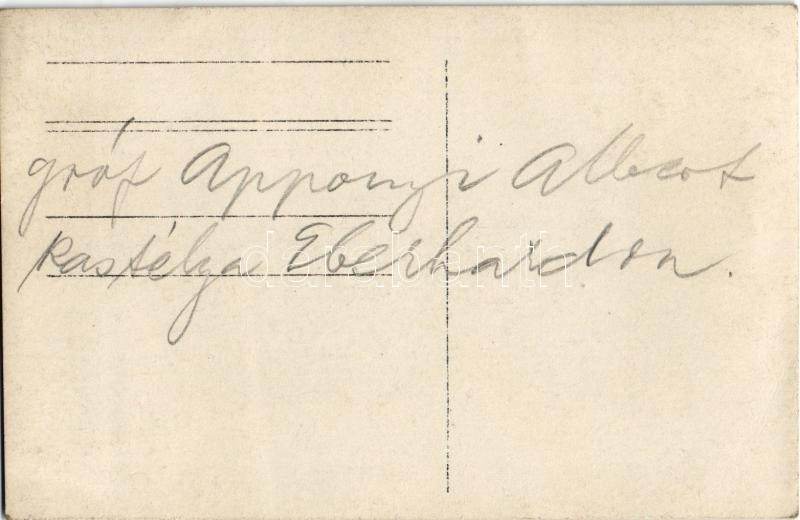 gróf Apponyi Albert
kastélya Eberhardon.
darabanth